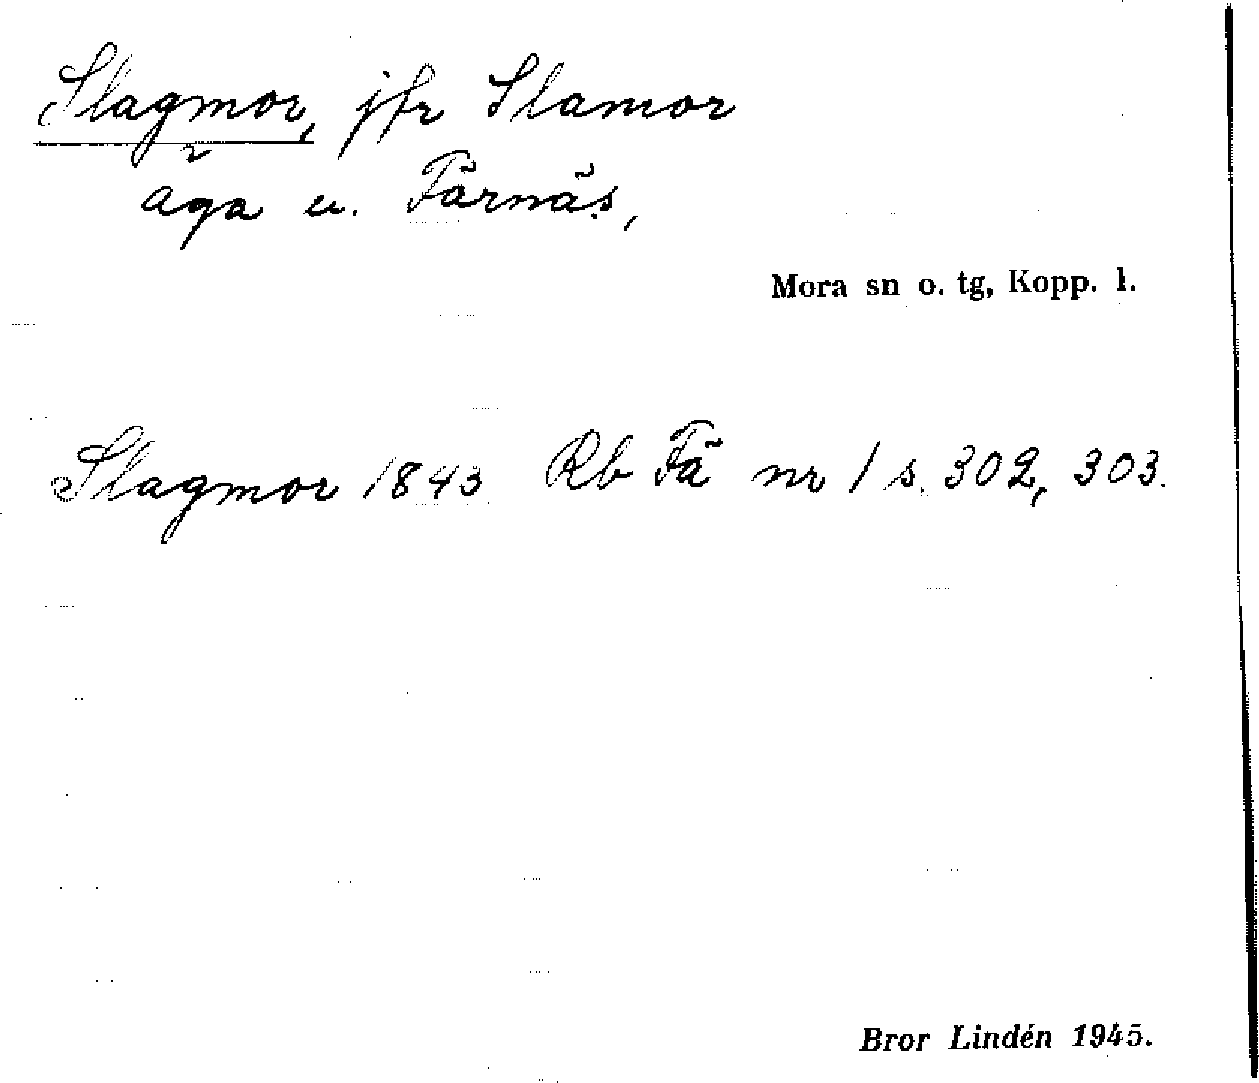 Slagmor, jfr Slamor
äga u. Färnäs,
Mora sn o. tg, Kopp. l.
Slagmor 1843 Rb Fä nr 1 s. 302, 303.
Bror Lindén 1945.